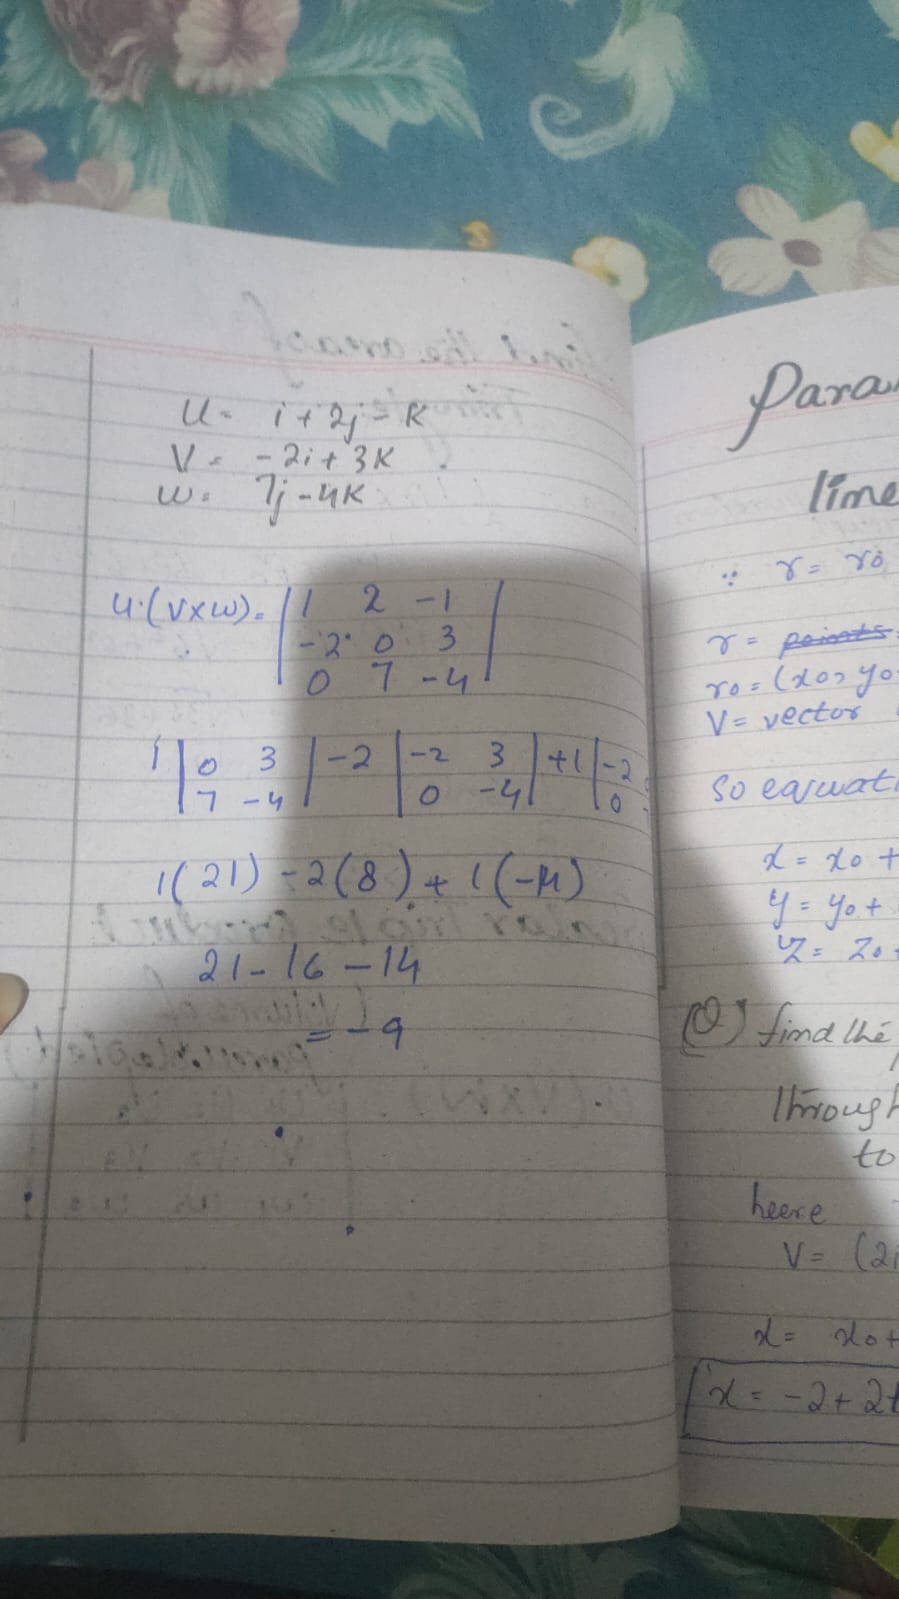 U = i + 2j - K
V = -2i + 3K
w = 7j - 4K
u.(V×w) = | 1 2 -1 |
| -2 0 3 |
| 0 7 -4 |
1 | 0 3 | -2 | -2 3 | +1 | -2
| 7 -4 | | 0 -4 | | 0
1(21) - 2(8) + 1(-14)
21 - 16 - 14
= -9
Para
line
∵ r = r0
r =
r0 = (x0, y0
V = vector
So eqwati
x = x0 +
y = y0 +
Z = Z0 +
(Q) find the
through
to
heere
V = (2i
x = x0 +
x = -2 + 2t